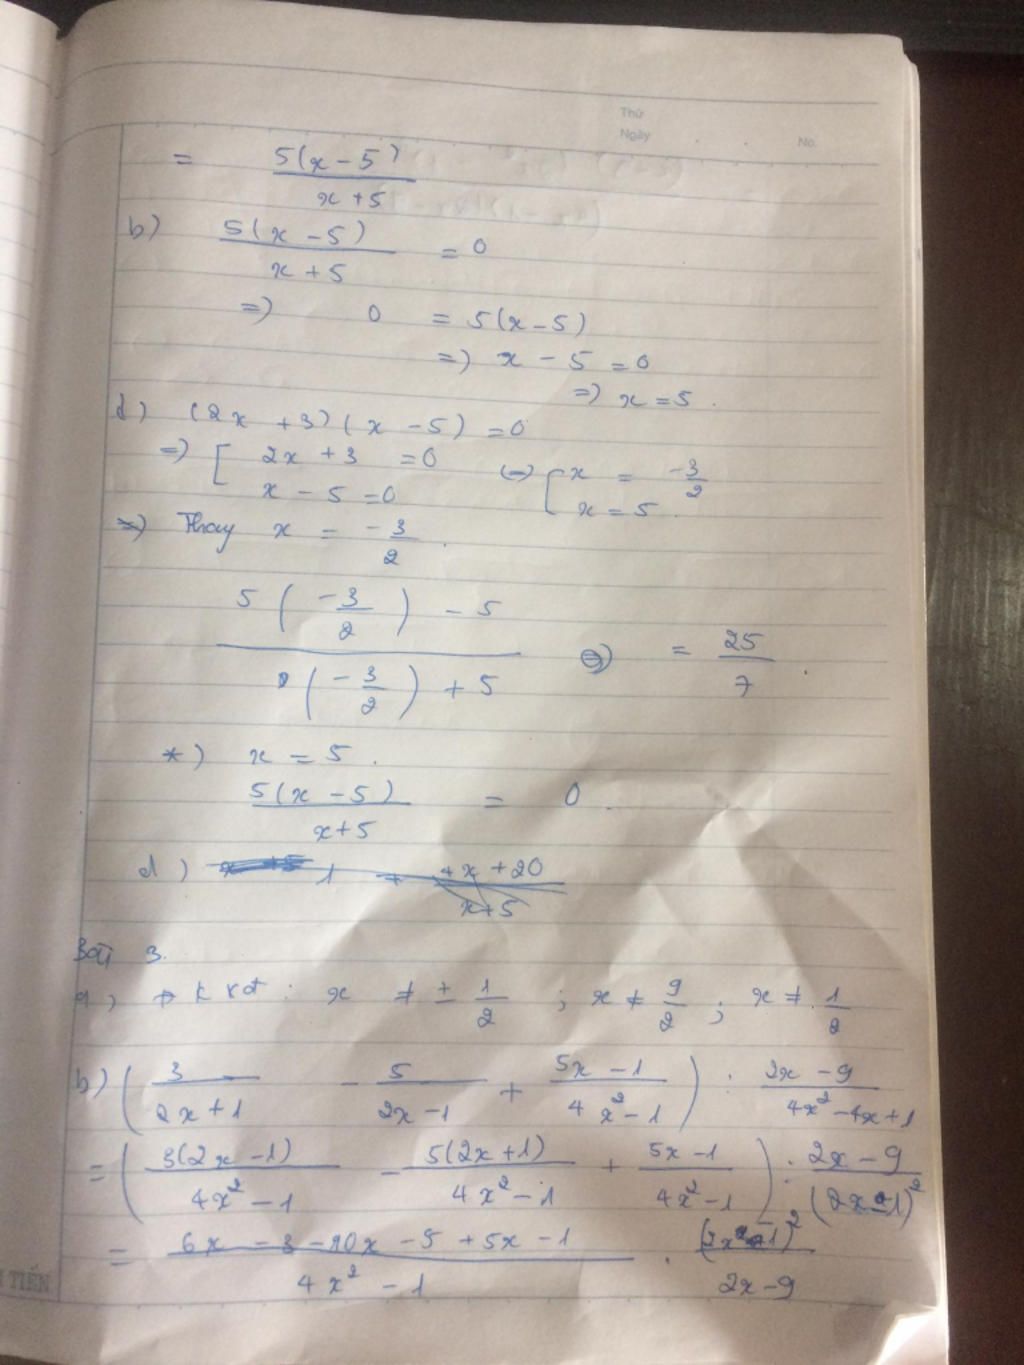 Thứ
Ngày No.
= 5(x - 5) / x + 5
b) 5(x - 5) / x + 5 = 0
=) 0 = 5(x - 5)
=) x - 5 = 0
=) x = 5.
d) (2x + 3)(x - 5) = 0
=) [ 2x + 3 = 0 (=) [ x = -3/2
x - 5 = 0 x = 5.
=) Thay x = -3/2.
5(-3/2) - 5 / (-3/2) + 5 = 25/7.
*) x = 5.
5(x - 5) / x + 5 = 0.
d) x + 5 1 + 4x + 20 / x + 5
Bài 3.
a, Đkxđ: x ≠ ± 1/2 ; x ≠ 9/2 ; x ≠ 1/2
b) (3 / 2x + 1 - 5 / 2x - 1 + 5x - 1 / 4x² - 1) : 2x - 9 / 4x² - 4x + 1
= (3(2x - 1) / 4x² - 1 - 5(2x + 1) / 4x² - 1 + 5x - 1 / 4x² - 1) : 2x - 9 / (2x - 1)²
= 6x - 3 - 10x - 5 + 5x - 1 / 4x² - 1 . (2x - 1)² / 2x - 9
TIẾN